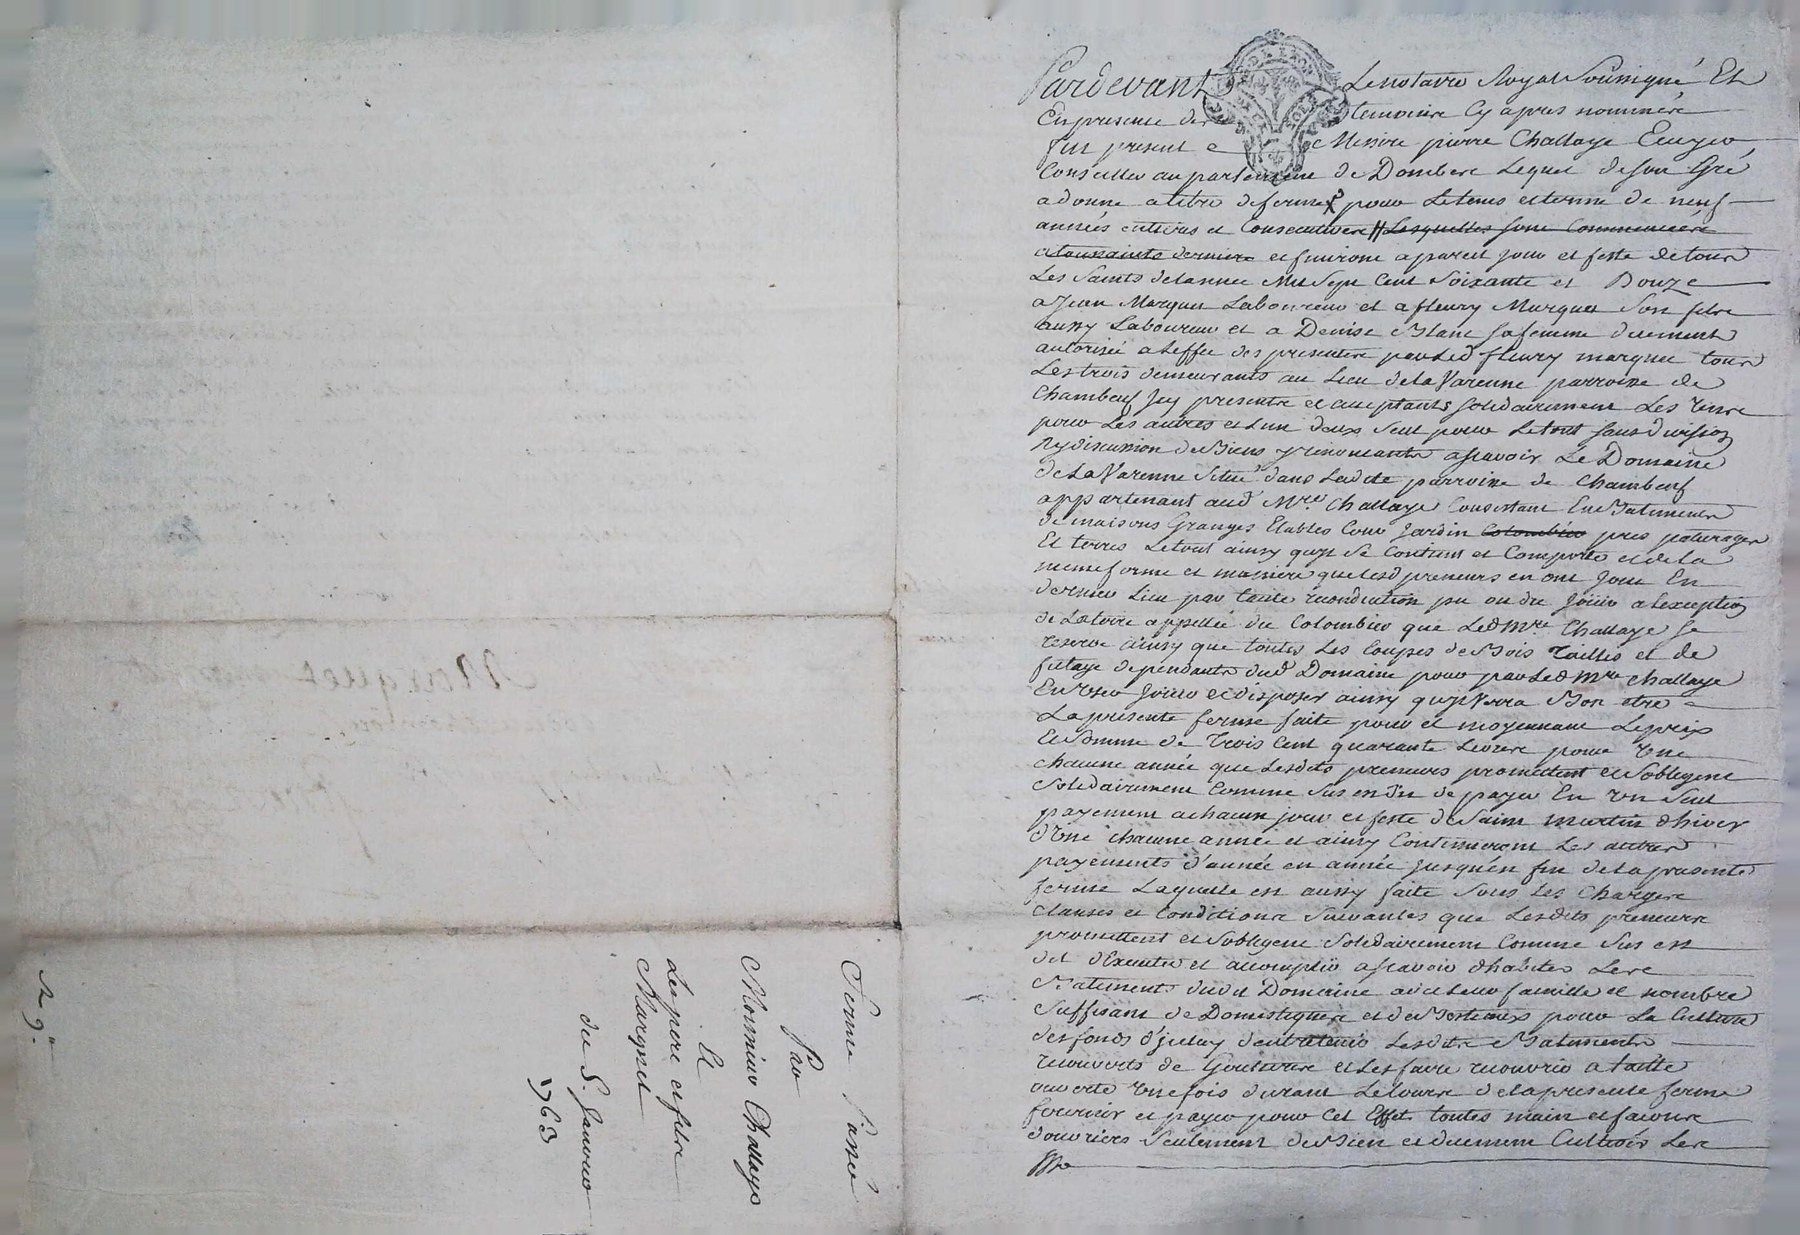 Pardevant Le notaire Royal Soussigné Et
En presence des temoins Cy apres nommés
fut present Messire pierre Challaye Ecuyer
Conseiller au parlement de Dombes Lequel de son Gré
a donné a titre de ferme pour Le tems et terme de neuf
années entieres et Consecutives Lesquelles sont Commencées
a toussaints derniere et finiront a pareil jour et feste de tous
Les Saints de lannee Mil Sept Cent Soixante et Douze
a Jean Marquet Laboureur et a fleury Marquet Son fils
aussy Laboureur et a Denise Blanc sa femme duement
autorisée a Leffet des presentes par Led fleury marquet tous
Les trois demeurants au Lieu de la Varenne parroisse de
Chambeuf Jcy presents et acceptants solidairement Les Uns
pour Les autres et Lun deux seul pour Le tout sans division
Ny discussion de Biens y renonceants ascavoir Le Domaine
de La Varenne Situé dans Ladite parroisse de Chambeuf
appartenant aud Mre Challaye Consistant En Batiments
de maisons Granges Etables Cour Jardin Colombier prés paturages
Et terres Le tout ainsy quil se Contient et Comporte et de la
meme forme et maniere que lesd preneurs en ont Joui En
dernier Lieu par tacite reconduction pu ou du Joüir a lexception
de La terre appellée du Colombier que Led Mre Challaye se
reserve ainsy que toutes Les Coupes de Bois Taillis et de
futaye dependants dud Domaine pour par Led Mre Challaye
En User Joüir et disposer ainsy quil Verra Bon etre
La presente ferme faite pour et moyennant Le prix
Et Somme de Trois Cent quarante Livres pour Une
chacune année que Lesdits preneurs promettent et Sobligent
Solidairement Comme Sus est dit de payer En Un Seul
payement a chacun jour et feste de Saint Martin dhiver
d'Une chacune année et ainsy Continueront Les autres
payements d'année en année Jusquén fin de la presente
ferme Laquelle est aussy faite Sous Les Charges
Clauses et Conditions Suivantes que Lesdits preneurs
promettent et Sobligent Solidairement Comme Sus est
dit dExecuter et accomplir ascavoir dhabiter Les
Batiments dudit Domaine avec Leur famille et nombre
Suffisant de Domestiques et de Bestiaux pour La Culture
des fonds djceluy dentretenir Lesdits Batiments
recouverts de Goutieres et Les faire recouvrir a taille
ouverte Une fois durant Le cours de la presente ferme
fournir et payer pour Cet Effet toutes main et facons
douvriers Seulement de Bien et duement Cultiver Les
Ferme Passée
Par
Monsieur Challaye
Et
Les pere et fils
Marquet
du 8. Janvier
1763
Marquet